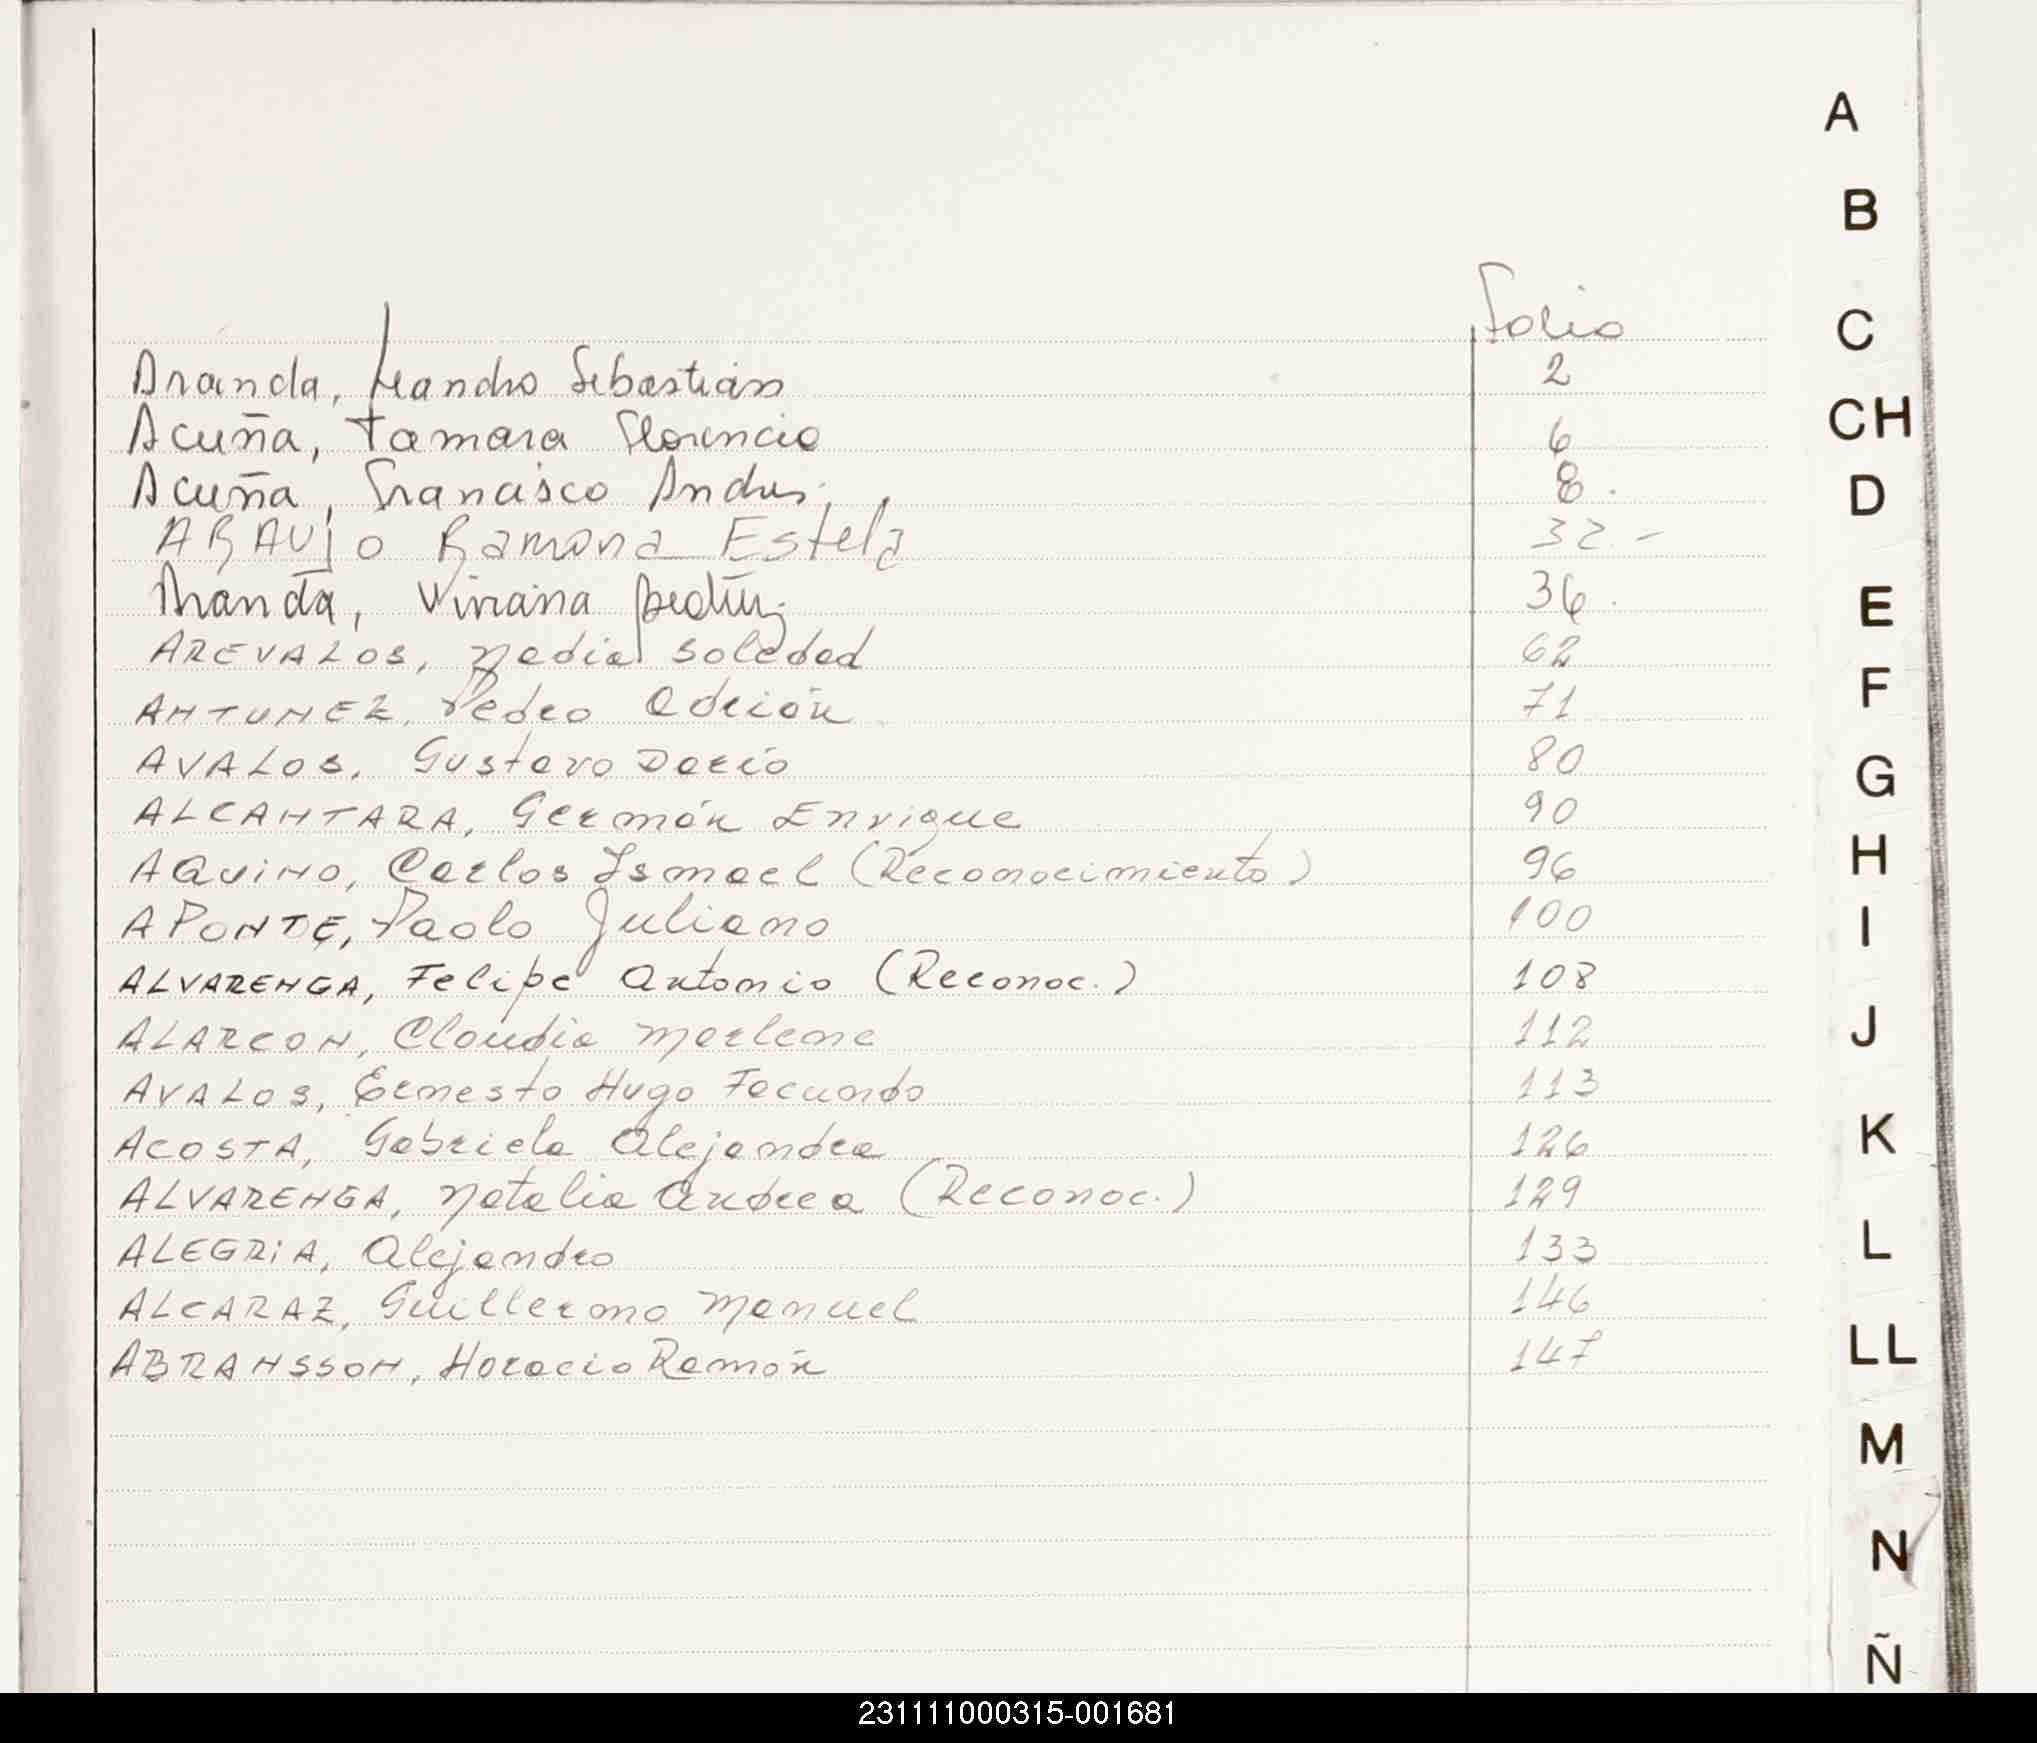 Folio
Aranda, Leandro Sebastián 2
Acuña, Tamara Florencia 6
Acuña, Francisco Andres. 8.
ARAUjo Ramona Estela 32.-
Aranda, Viviana Beatriz. 36.
AREVALOS, Nadia Soledad 62
ANTUNEZ, Pedro Adrián 71
AVALOS, Gustavo Darío 80
ALCANTARA, Germán Enrique 90
AQUINO, Carlos Ismael (Reconocimiento) 96
APONTE, Paolo Juliano 100
ALVARENGA, Felipe Antonio (Reconoc.) 108
ALARCON, Claudia Marlene 112
AVALOS, Ernesto Hugo Facundo 113
ACOSTA, Gabriela Alejandra 126
ALVARENGA, Natalia Andrea (Reconoc.) 129
ALEGRIA, Alejandro 133
ALCARAZ, Guillermo Manuel 146
ABRANSSON, Horacio Ramón 147
A
B
C
CH
D
E
F
G
H
I
J
K
L
LL
M
N
Ñ
231111000315-001681